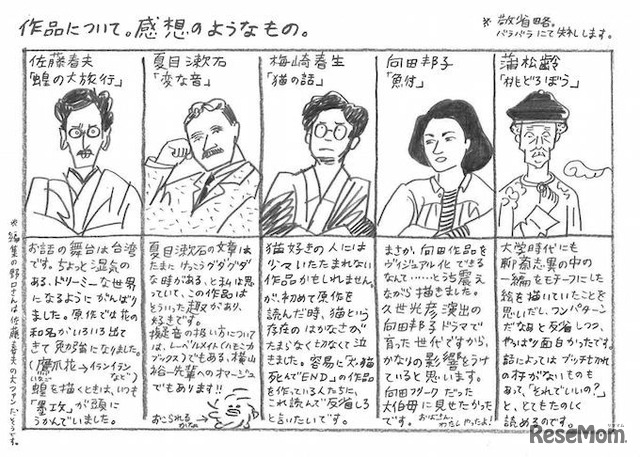 作品について。感想のようなもの。
※敬省略。
バラバラにて失礼します。
佐藤春夫
「蝗の大旅行」
お話の舞台は台湾
です。ちょっと湿気の
ある、ドリーミーな世界
になるようにがんばり
ました。原作では花の
和名がいろいろ出て
きて勉強になりました。
(鷹爪花→イランイラン
など)
蝗を描くときは、いつも
「墨攻」が頭に
うかんでいました。
※編集の野口さんは佐藤春夫の大ファンだそうです。
夏目漱石
「変な音」
夏目漱石の文章は
たまにけっこうグダグダ
な時がある、と私は思
っていて、この作品は
そういった趣があり、
好きです。
擬音の描い方について
は、レーベルメイト(ハモニカ
ブックス)でもある、横山
裕一先輩へのオマージュ
でもあります!!
おこられる
かな
梅崎春生
「猫の話」
猫好きの人には
少々いたたまれない
作品かもしれません
が、初めて原作を
読んだ時、猫という
存在のはかなさが
たまらなくせつなくて泣
きました。容易に「犬・猫
死んで"END"」の作品
を作っている人たちに、
これ読んで反省しろ
と言いたいです。
向田邦子
「魚付」
まさか、向田作品を
ヴィジュアル化できる
なんて……とうち震え
ながら描きました。
久世光彦演出の
向田邦子ドラマで
育った世代ですから、
かなりの影響をうけ
ていると思います。
向田フリークだった
大伯母に見せたかった
です。
おばさん、
わたしやったよ!
蒲松齢
「桃どろぼう」
大学時代にも
聊斎志異の中の
一編をモチーフにした
絵を描いていたことを
思いだし、ワンパターン
だなあと反省しつつ、
やっぱり面白かったです。
話によってはブッチぎれ
の才がないものも
あって、「それでいいの?」
と、とてもたのしく
読めるのです。
リセマム
ReseMom.